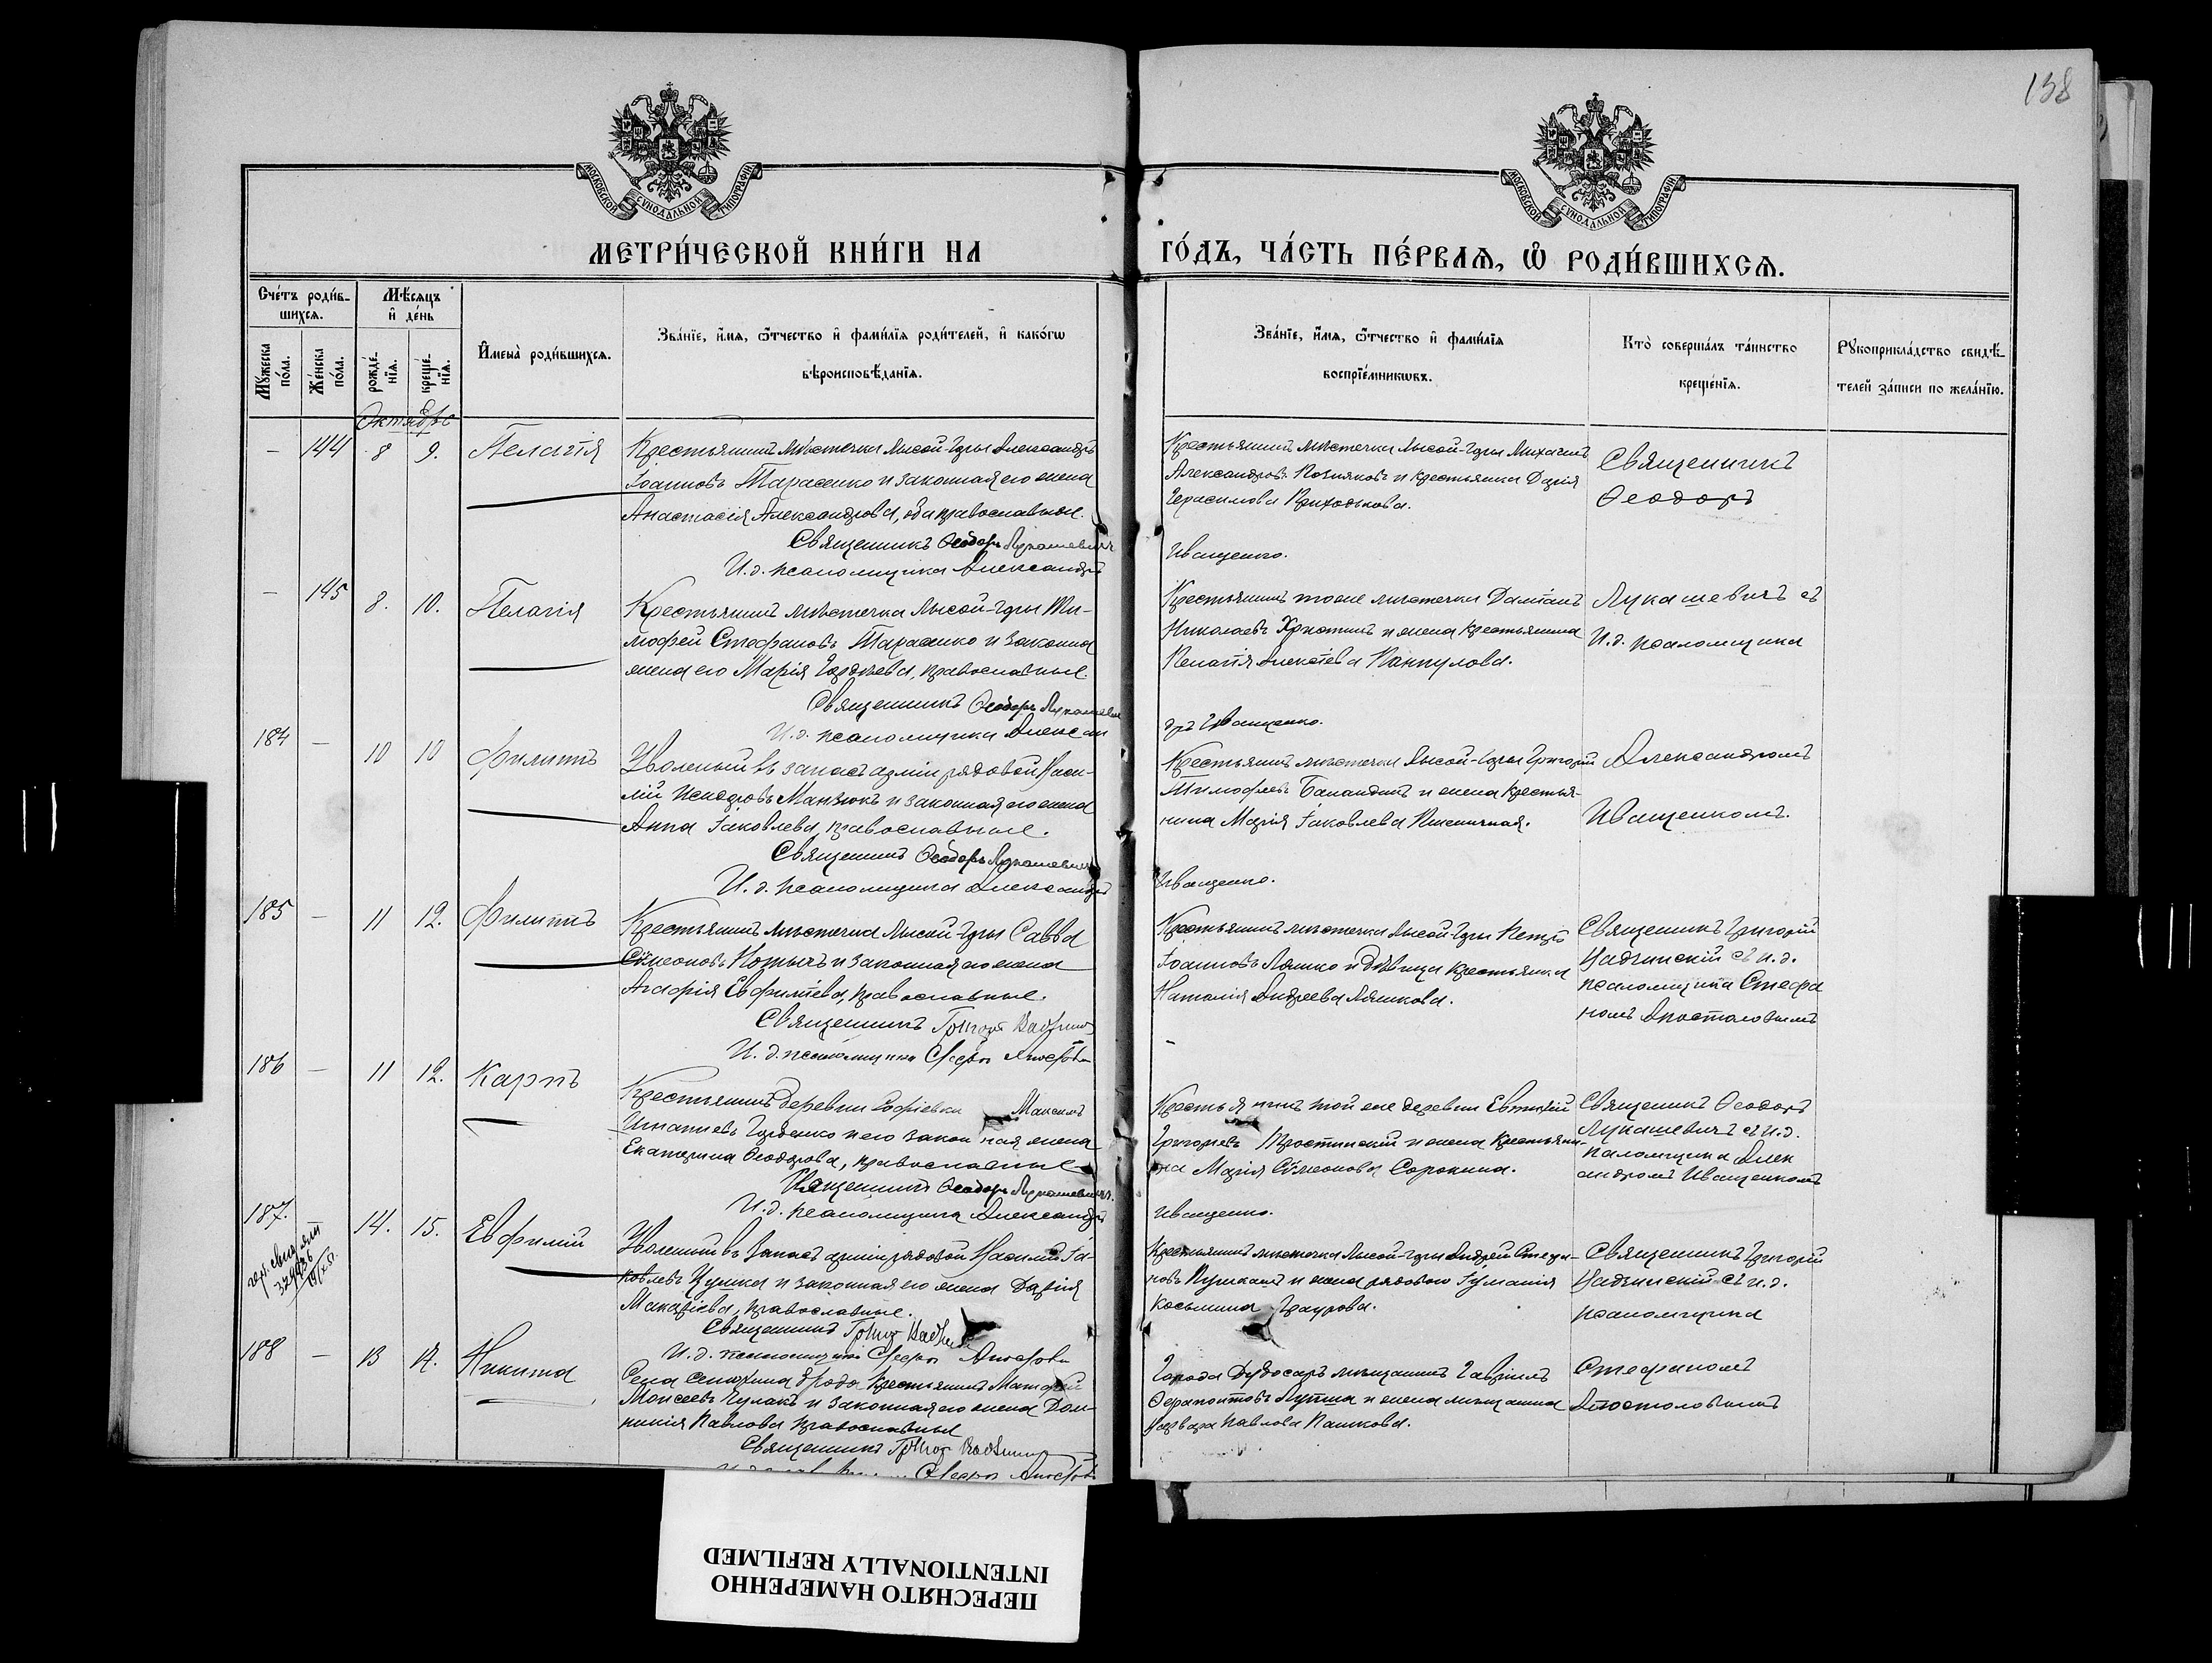 138
МОСКОВСКОЙ СѴНОДАЛЬНОЙ ТИПОГРАФІИ
МОСКОВСКОЙ СѴНОДАЛЬНОЙ ТИПОГРАФІИ
МЕТРИ́ЧЕСКОЙ КНИ́ГИ НА ГО́ДЪ, ЧА́СТЬ ПЕ́РВАѦ, Ѡ҆ РОДИ́ВШИХСѦ.
Сче́тъ роди́в-
шихсѧ.
Мѣ́сѧцъ
и҆ де́нь
Мꙋ́жеска по́ла.
Же́нска по́ла.
рожде́-
нїѧ.
креще́-
нїѧ.
И҆мена̀ роди́вшихсѧ.
Зва́нїе, и҆́мѧ, ѻ҆́тчество и҆ фами́лїѧ роди́телей, и҆ како́гѡ
вѣроисповѣ́данїѧ.
Зва́нїе, и҆́мѧ, ѻ҆́тчество и҆ фами́лїѧ
воспрїе́мникѡвъ.
Кто̀ соверша́лъ та́инство
креще́нїѧ.
Рꙋкоприкла́дство свидѣ́-
телей за́писи по жела́нїю.
Октябрь
– 144 8 9. Пелагія
Крестьянинъ мѣстечка Лысой-Горы Александръ
Іоанновъ Тарасенко и законная его жена
Анастасія Александрова, оба православные.
Священникъ Ѳеодоръ Лукашевичъ
И. д. псаломщика Александръ
Крестьянинъ мѣстечка Лысой-Горы Михаилъ
Александровъ Позняковъ и крестьянка Дарія
Герасимова Приходькова.
Иващенко.
Священникъ
Ѳеодоръ
– 145 8. 10. Пелагія
Крестьянинъ мѣстечка Лысой-Горы Ти-
мофей Стефановъ Тарасенко и законная
жена его Марія Гордѣева, православные.
Священникъ Ѳеодоръ Лукашевичъ
И. д. псаломщика Алексан
Крестьянинъ того же мѣстечка Даміанъ
Николаевъ и жена крестьянина
Пелагія Алексѣева
дръ Иващенко.
Лукашевичъ съ
И. д. псаломщика
184 – 10 10 Филиппъ
Уволеный въ запасъ арміи рядовой Васи-
лій Исидоровъ Манзюкъ и законная его жена
Анна Іаковлева, православные.
Священникъ Ѳеодоръ Лукашевичъ
И. д. псаломщика Александръ
Крестьянинъ мѣстечка Лысой-Горы Григорій
Тимофеевъ Баландинъ и жена крестья-
нина Марія Іаковлева Пшеничная.
Иващенко.
Александромъ
Иващенкомъ.
185 – 11 12. Филиппъ
Крестьянинъ мѣстечка Лысой-Горы Савва
Сѵмеоновъ и законная его жена
Агафія Евфиміева, православные.
Священникъ
И. д. псаломщика
Крестьянинъ мѣстечка Лысой-Горы Петръ
Іоанновъ Ляшко и дѣвица крестьянка
Наталія Андреева Ляшкова.
Священникъ Григорій
съ и. д.
псаломщика Стефа
номъ Апостоловымъ
186 – 11 12. Карпъ
Крестьянинъ деревни Софіевки Максимъ
Игнатіевъ Горбенко и его законная жена
Екатерина Ѳеодорова, православные
Священникъ Ѳеодоръ Лукашевичъ.
И. д. псаломщика Александръ
Крестьянинъ той же деревни Евтихій
Григорьевъ и жена крестьяни-
на Марія Сѵмеонова Сорокина.
Иващенко.
Священникъ Ѳеодоръ
Лукашевичъ съ и. д.
псаломщика Алек
андромъ Иващенкомъ
187. 14. 15. Евфимій
Уволеный въ запасъ арміи рядовой Василій Іа-
ковлевъ Цушка и законная его жена Дарія
Макаріева, православные.
Священникъ
И. д. псаломщика
Крестьянинъ мѣстечка Лысой-Горы Андрей Стефа-
новъ Пушкашъ и жена рядового Іуліанія
Косьмина
Священникъ Григорій
съ и. д.
псаломщика
188 – 13 14. Никита
Села Сенюхина Брода крестьянинъ Матфей
Моисеевъ Чулакъ и законная его жена Дом-
никія Павлова православные
Священникъ
Города Дубосаръ мѣщанинъ Гавріилъ
Ѳерапонтовъ Лупша и жена мѣщанина
Варвара Павлова Пашкова.
Стефаномъ
Апостоловымъ
ПЕРЕСНЯТО НАМЕРЕННО
INTENTIONALLY REFILMED